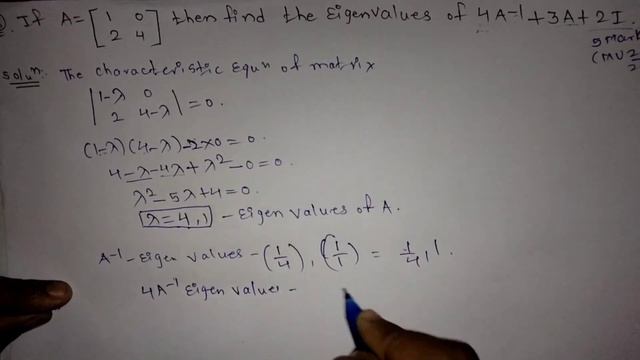 If A = [1 0 2 4] then find the Eigenvalues of 4A⁻¹+3A+2I.
Soluⁿ. The characteristic Equⁿ of matrix
|1-λ 0 2 4-λ| = 0.
(1-λ)(4-λ)-2×0=0.
4-λ-4λ+λ²-0=0.
λ²-5λ+4=0.
λ=4,1 - Eigen values of A.
A⁻¹ - Eigen values - (1/4), (1/1) = 1/4, 1.
4A⁻¹ Eigen values -